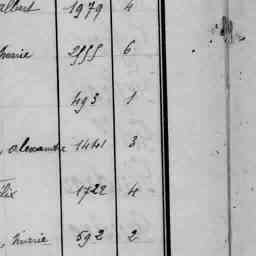 albert 1979 4
marie 2555 6
493 1
, alexandre 1441 3
élix 1722 4
, marie 592 2